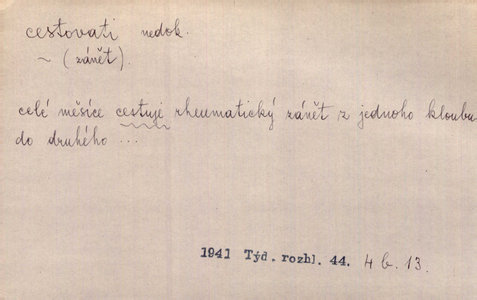 cestovati nedok.
~ (zánět).
celé měsíce cestuje rheumatický zánět z jednoho kloubu
do druhého ...
1941 Týd. rozhl. 44. 4 b. 13.